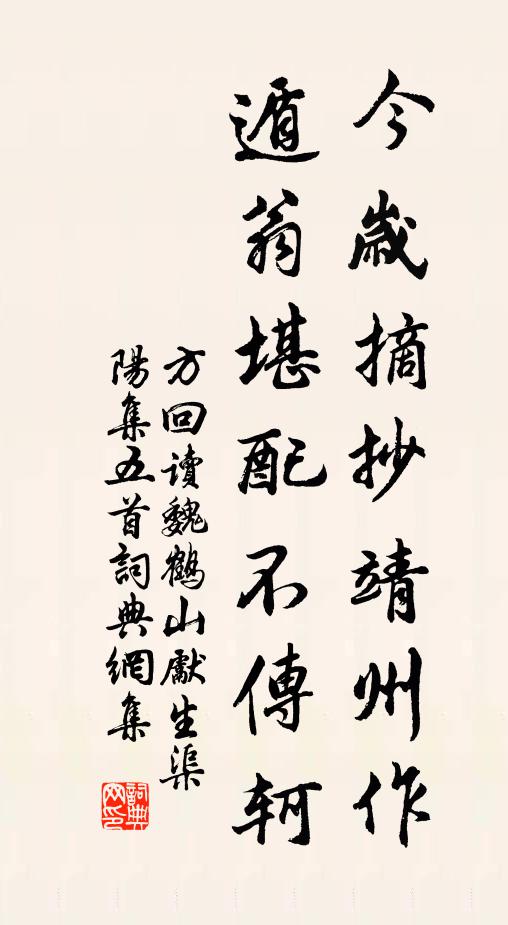 今歲摘抄靖州作
遁翁堪配不傳軻
方回讀魏鶴山獻生渠
陽集五首詞典網集
詞典
网印